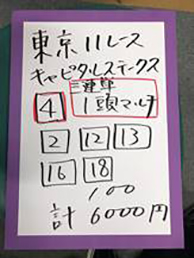 東京11レース
キャピタルステークス
三連単
4 1頭マルチ
2 12 13
16 18
100
計 6000円